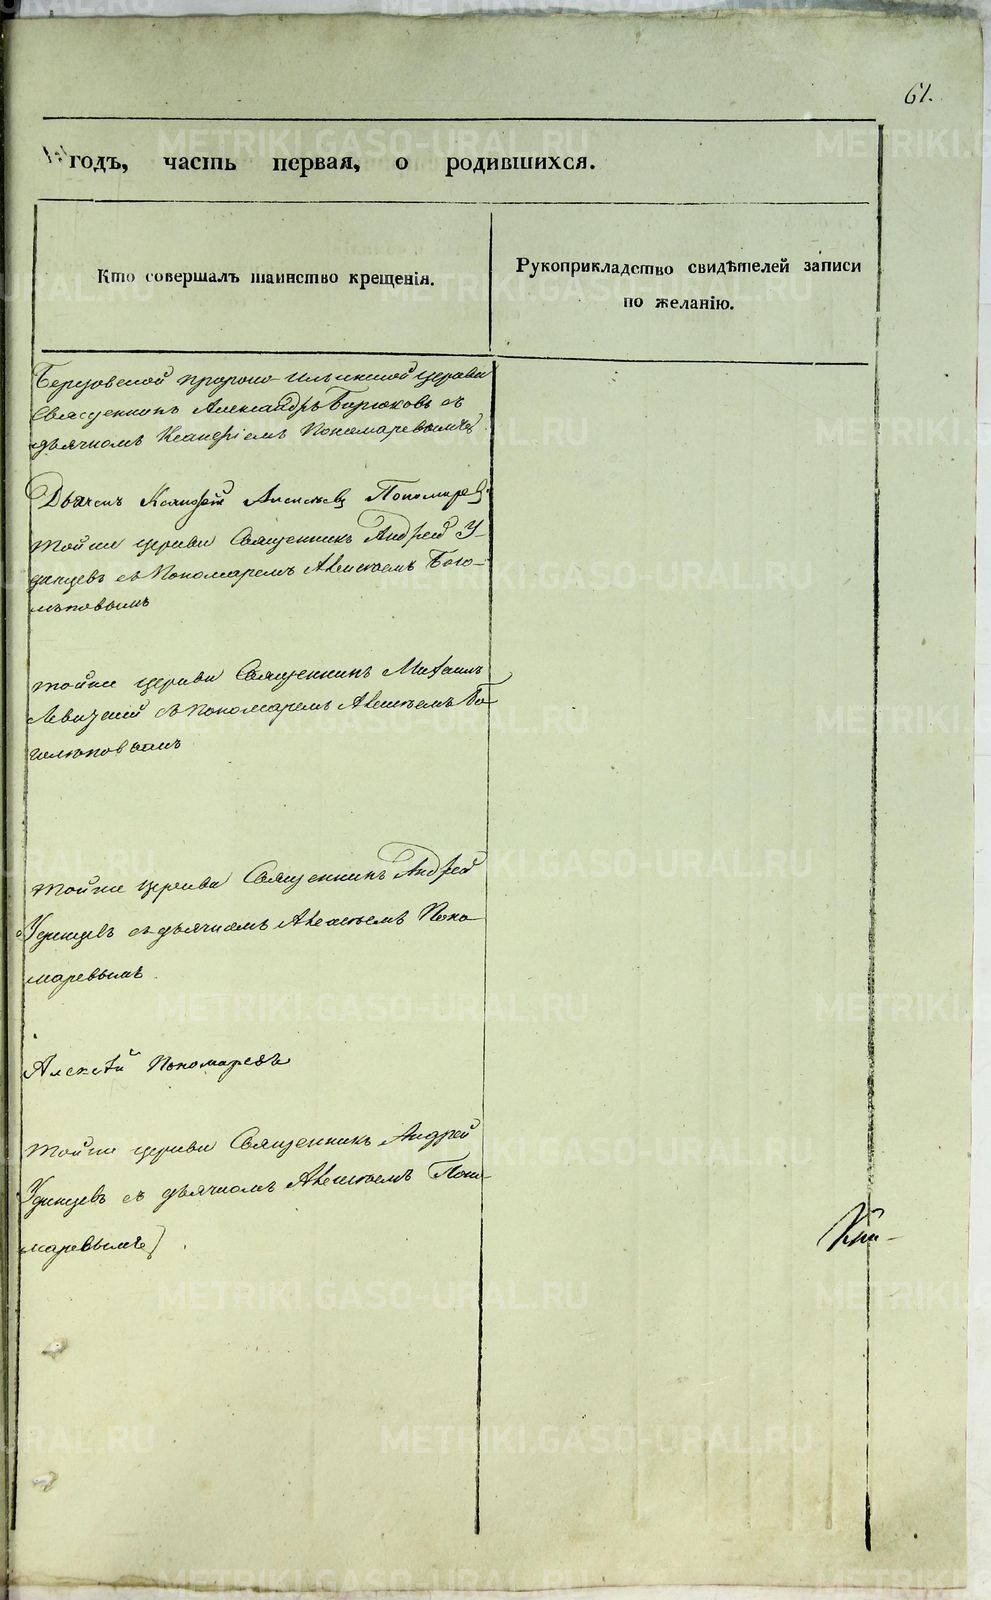 61.
годъ, часть первая, о родившихся.
Кто совершалъ таинство крещенія.
Рукоприкладство свидѣтелей записи
по желанію.
Пророко-Ильинской церкви
Священникъ Александръ Бирюковъ съ
дьячкомъ Пономаревымъ
Дьячекъ Алексѣевъ Пономаревъ
Тойже церкви Священникъ Андрей У-
динцевъ съ Пономаремъ Алексѣемъ Бого-
лѣповымъ
Тойже церкви Священникъ Михаилъ
Левицкій съ пономаремъ Алексѣемъ Бо-
голѣповымъ
Тойже церкви Священникъ Андрей
Удинцевъ съ дьячкомъ Алексѣемъ Поно-
маревымъ
Алексѣй Пономаревъ
Тойже церкви Священникъ Андрей
Удинцевъ съ дьячкомъ Алексѣемъ Поно-
маревымъ
METRIKI.GASO-URAL.RU